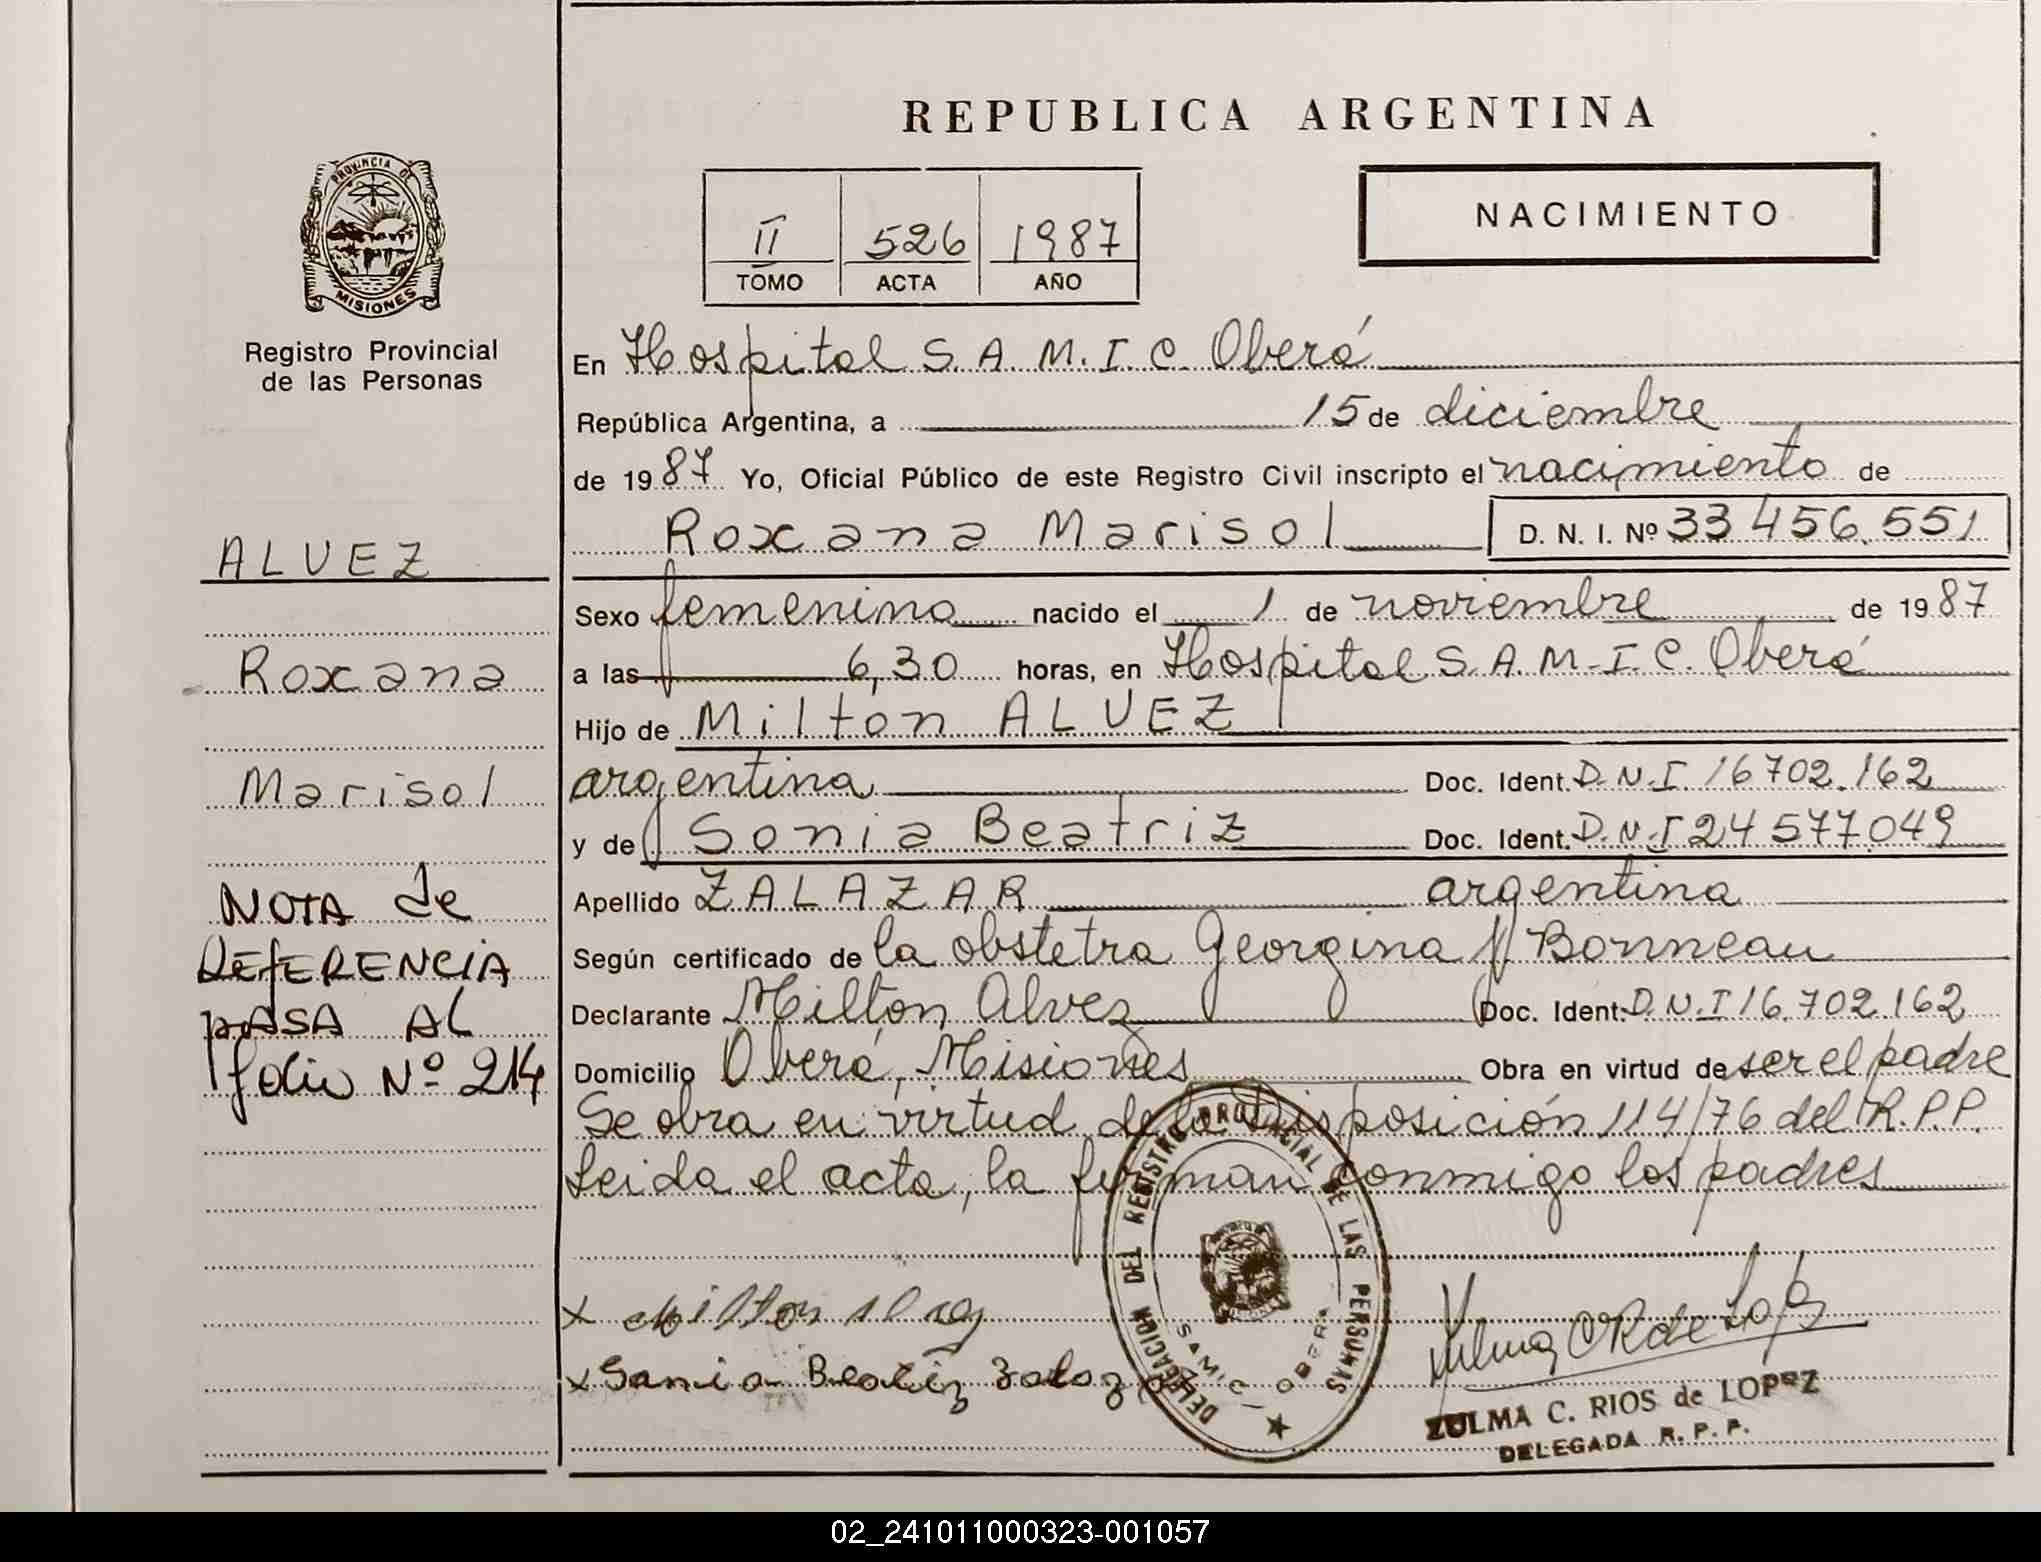 REPUBLICA ARGENTINA
PROVINCIA DE
MISIONES
Registro Provincial
de las Personas
II 526 1987
TOMO ACTA AÑO
NACIMIENTO
En Hospital S.A.M.I.C. Oberá
República Argentina, a 15 de diciembre
de 1987 Yo, Oficial Público de este Registro Civil inscripto el nacimiento de
Roxana Marisol D. N. I. Nº 33 456.551
Sexo femenino nacido el 1 de noviembre de 1987
a las 6,30 horas, en Hospital S.A.M.I.C. Oberá
Hijo de Milton ALVEZ
argentina Doc. Ident. D.N.I 16 702.162
y de Sonia Beatriz Doc. Ident. D.N.I 24 577.049
Apellido ZALAZAR argentina
Según certificado de la obstetra Georgina Bonneau
Declarante Milton Alvez Doc. Ident: D.N.I 16.702.162
Domicilio Oberá, Misiones Obra en virtud de ser el padre
Se obra en virtud de la Disposición 114/76 del R.P.P.
Leida el acta, la firman conmigo los padres
ALVEZ
Roxana
Marisol
NOTA de
REFERENCIA
PASA AL
folio Nº 214
x Milton
x Sania Beatriz
DELEGACION DEL REGISTRO PROVINCIAL DE LAS PERSONAS
S.A.M.I.C. - OBERA
Zulma C R de López
ZULMA C. RIOS de LOPEZ
DELEGADA R. P. P.
02_241011000323-001057